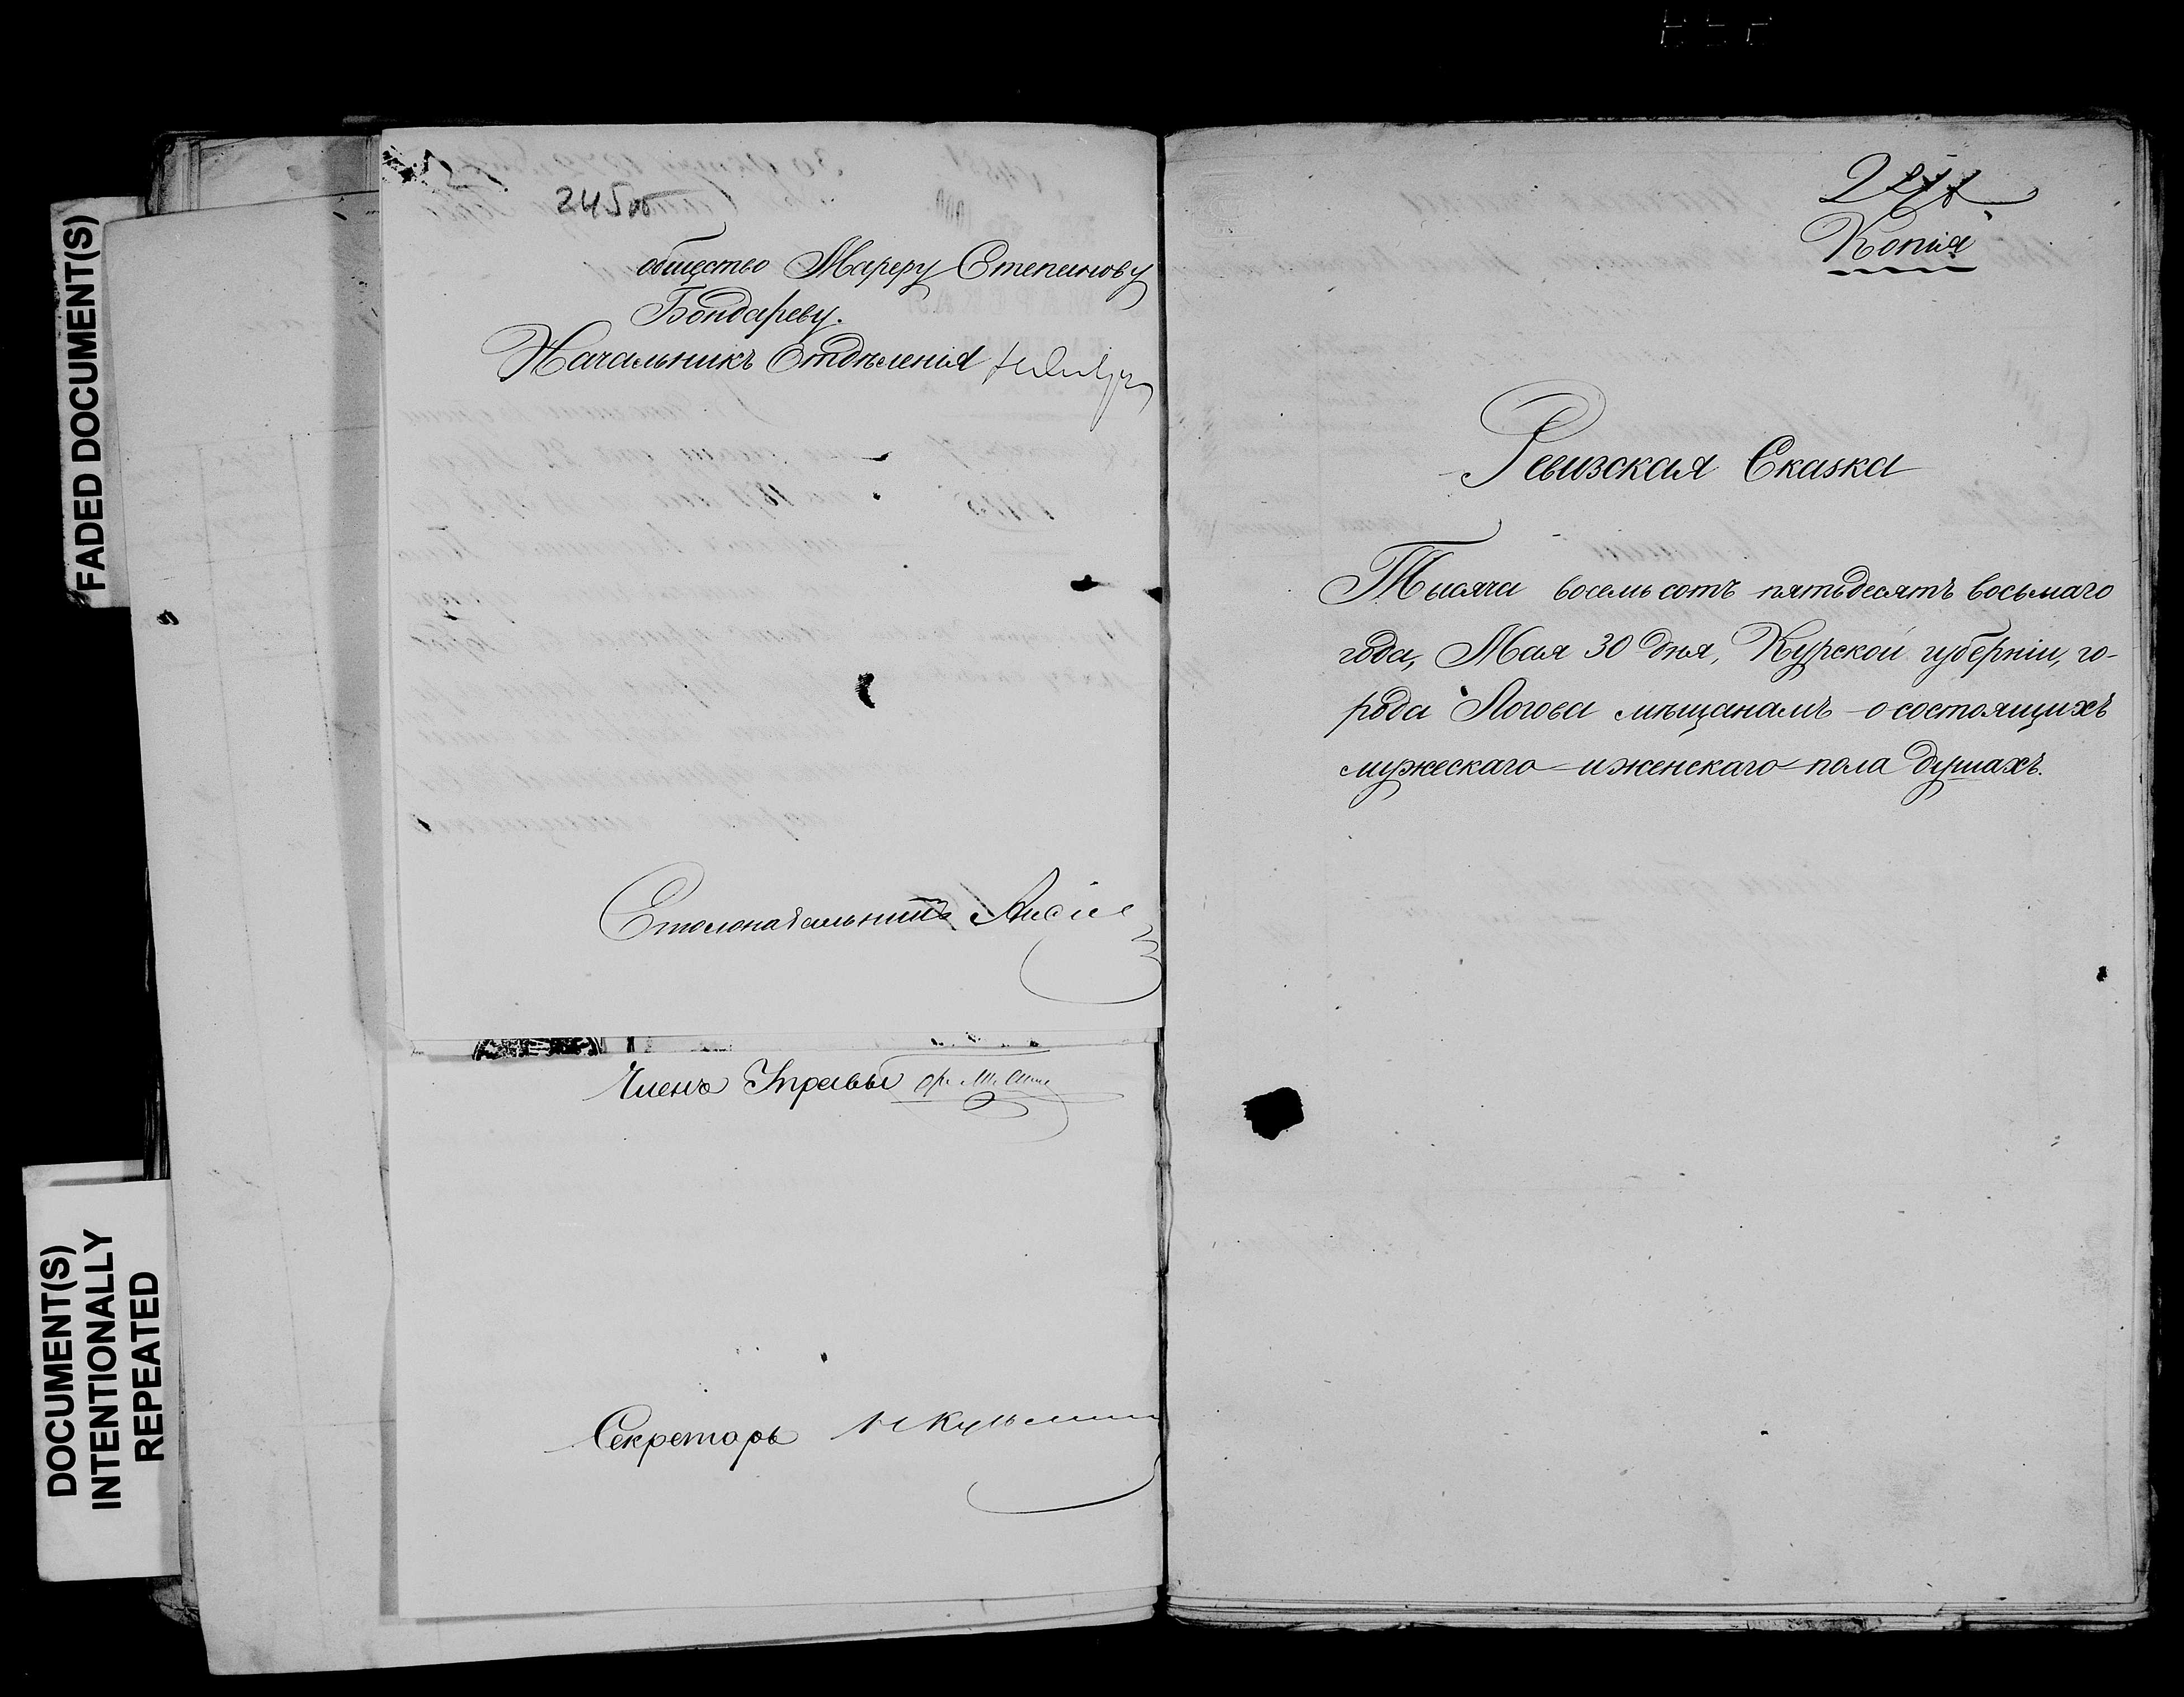 FADED DOCUMENT(S)
DOCUMENT(S)
INTENTIONALLY
REPEATED
245об
общество Степанову
Бондареву.
Начальникъ Отдѣленія
Столоначальникъ
Членъ Управы
Секретарь
Копія
Ревизская Сказка
Тысяча восемь сотъ пятьдесятъ восьмаго
года, Мая 30 дня, Курской губерніи, го-
рода Льгова мѣщанамъ о состоящихъ
мужескаго и женскаго пола душахъ.